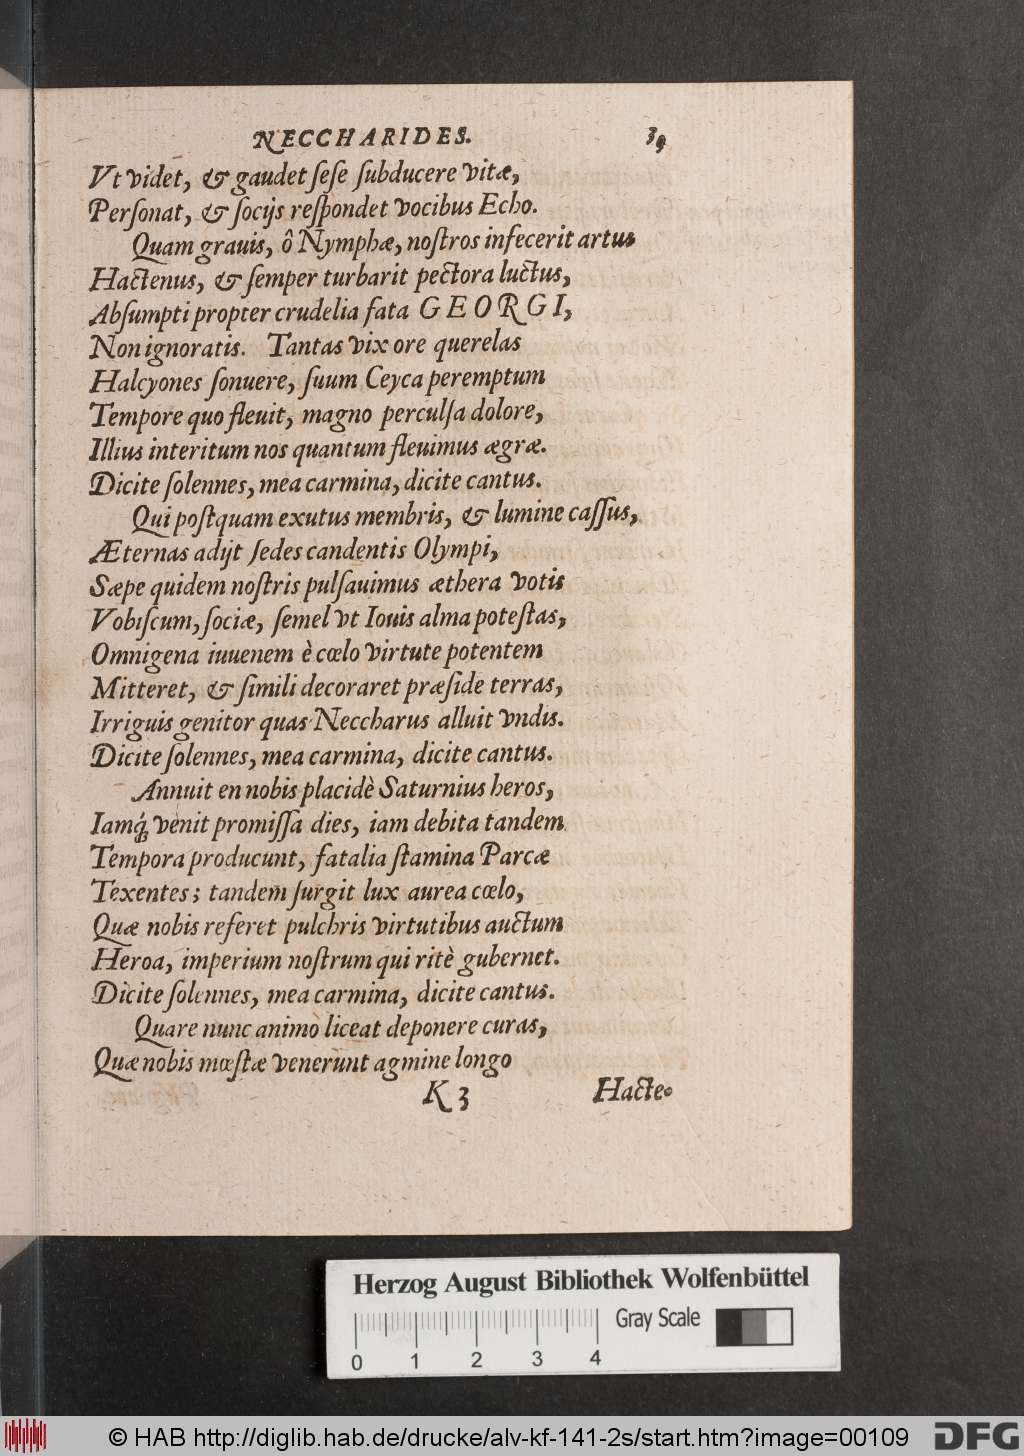 NECCHARIDES. 39
Vt videt, & gaudet ſeſe ſubducere vitæ,
Perſonat, & ſocijs reſpondet vocibus Echo.
Quam grauis, ô Nymphæ, noſtros infecerit artus
Hactenus, & ſemper turbarit pectora luctus,
Abſumpti propter crudelia fata GEORGI,
Non ignoratis. Tantas vix ore querelas
Halcyones ſonuere, ſuum Ceyca peremptum
Tempore quo fleuit, magno perculſa dolore,
Illius interitum nos quantum fleuimus ægræ.
Dicite ſolennes, mea carmina, dicite cantus.
Qui poſtquam exutus membris, & lumine caſſus,
Æternas adijt ſedes candentis Olympi,
Sæpe quidem noſtris pulſauimus æthera votis
Vobiſcum, ſociæ, ſemel vt Iouis alma poteſtas,
Omnigena iuuenem è cœlo virtute potentem
Mitteret, & ſimili decoraret præſide terras,
Irriguis genitor quas Neccharus alluit vndis.
Dicite ſolennes, mea carmina, dicite cantus.
Annuit en nobis placidè Saturnius heros,
Iamq́; venit promiſſa dies, iam debita tandem
Tempora producunt, fatalia ſtamina Parcæ
Texentes; tandem ſurgit lux aurea cœlo,
Quæ nobis referet pulchris virtutibus auctum
Heroa, imperium noſtrum qui ritè gubernet.
Dicite ſolennes, mea carmina, dicite cantus.
Quare nunc animo liceat deponere curas,
Quæ nobis mœſtæ venerunt agmine longo
K 3 Hacte-
Herzog August Bibliothek Wolfenbüttel
Gray Scale
0 1 2 3 4
© HAB http://diglib.hab.de/drucke/alv-kf-141-2s/start.htm?image=00109
DFG